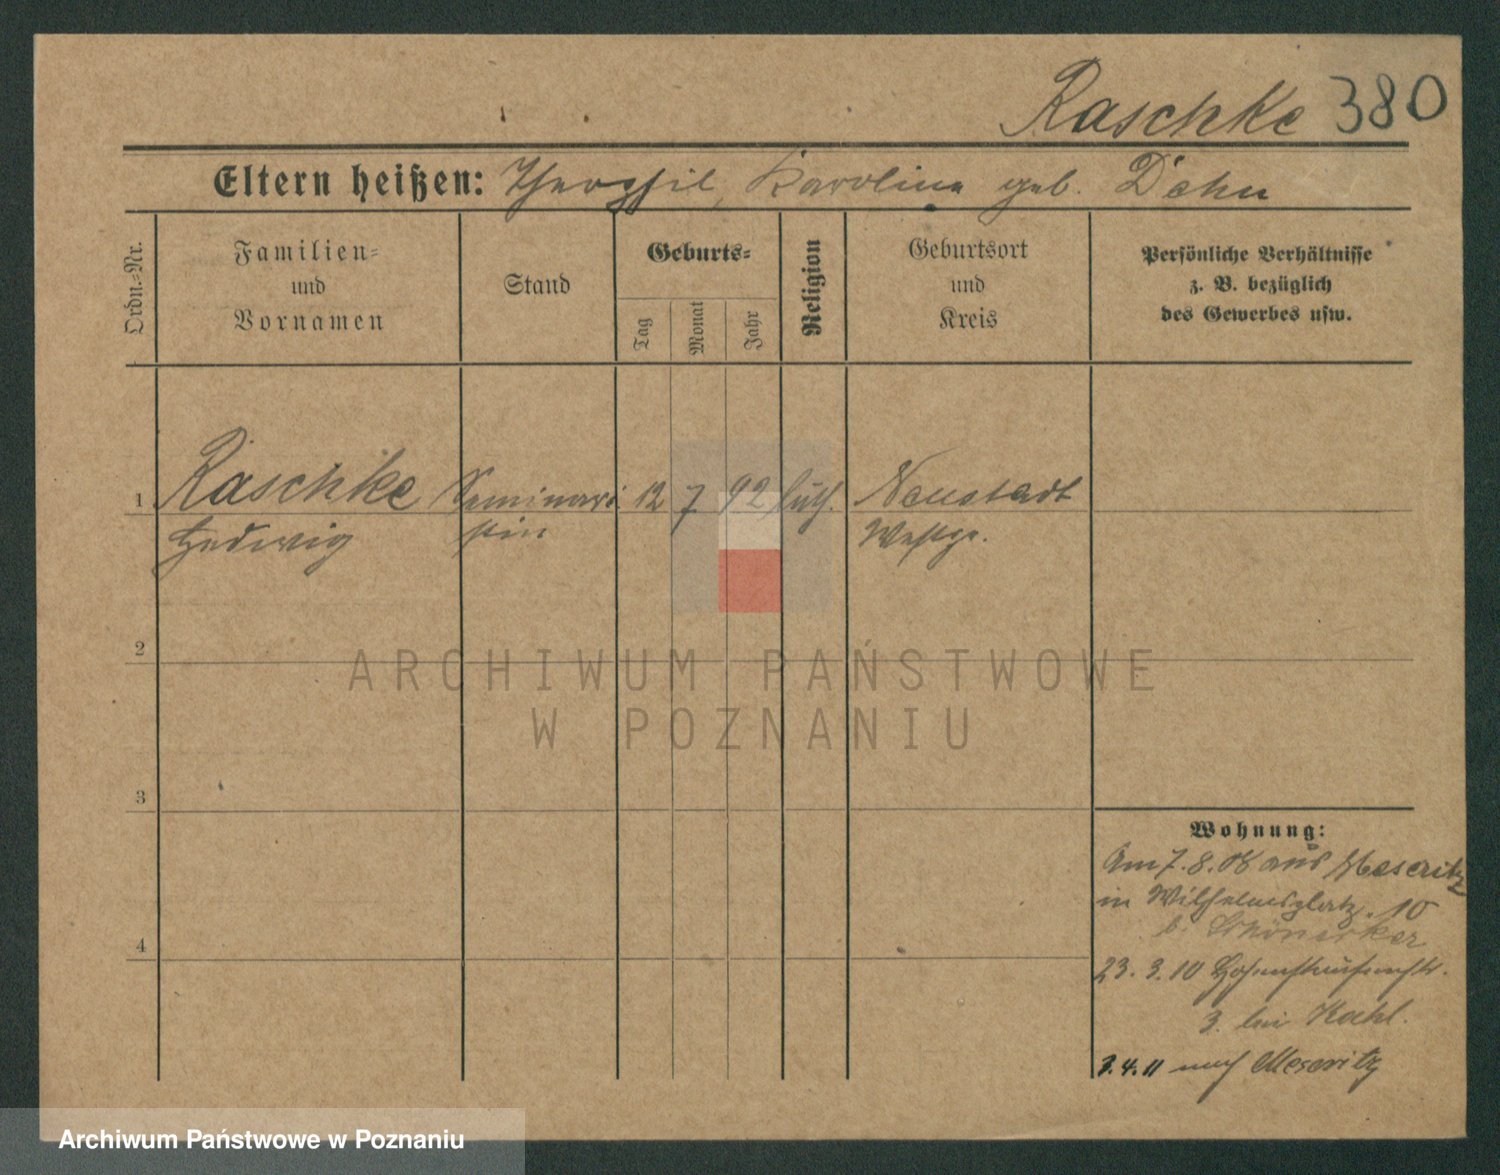 Raschke 380
Eltern heißen: Theophil, Karoline geb. Dehn
Ordn.-Nr.
Familien-
und
Vornamen
Stand
Geburts-
Tag
Monat
Jahr
Religion
Geburtsort
und
Kreis
Persönliche Verhältnisse
z. B. bezüglich
des Gewerbes usw.
1 Raschke Seminari 12 7 92 luth. Neustadt
Hedwig stin Westpr.
2
3
4
Wohnung:
Am 7.8.08 aus Meseritz
in Wilhelmsplatz 10
b.
23.3.10 Hohenstaufenstr.
3. bei Kahl.
3.4.11 nach Meseritz
ARCHIWUM PAŃSTWOWE
W POZNANIU
Archiwum Państwowe w Poznaniu